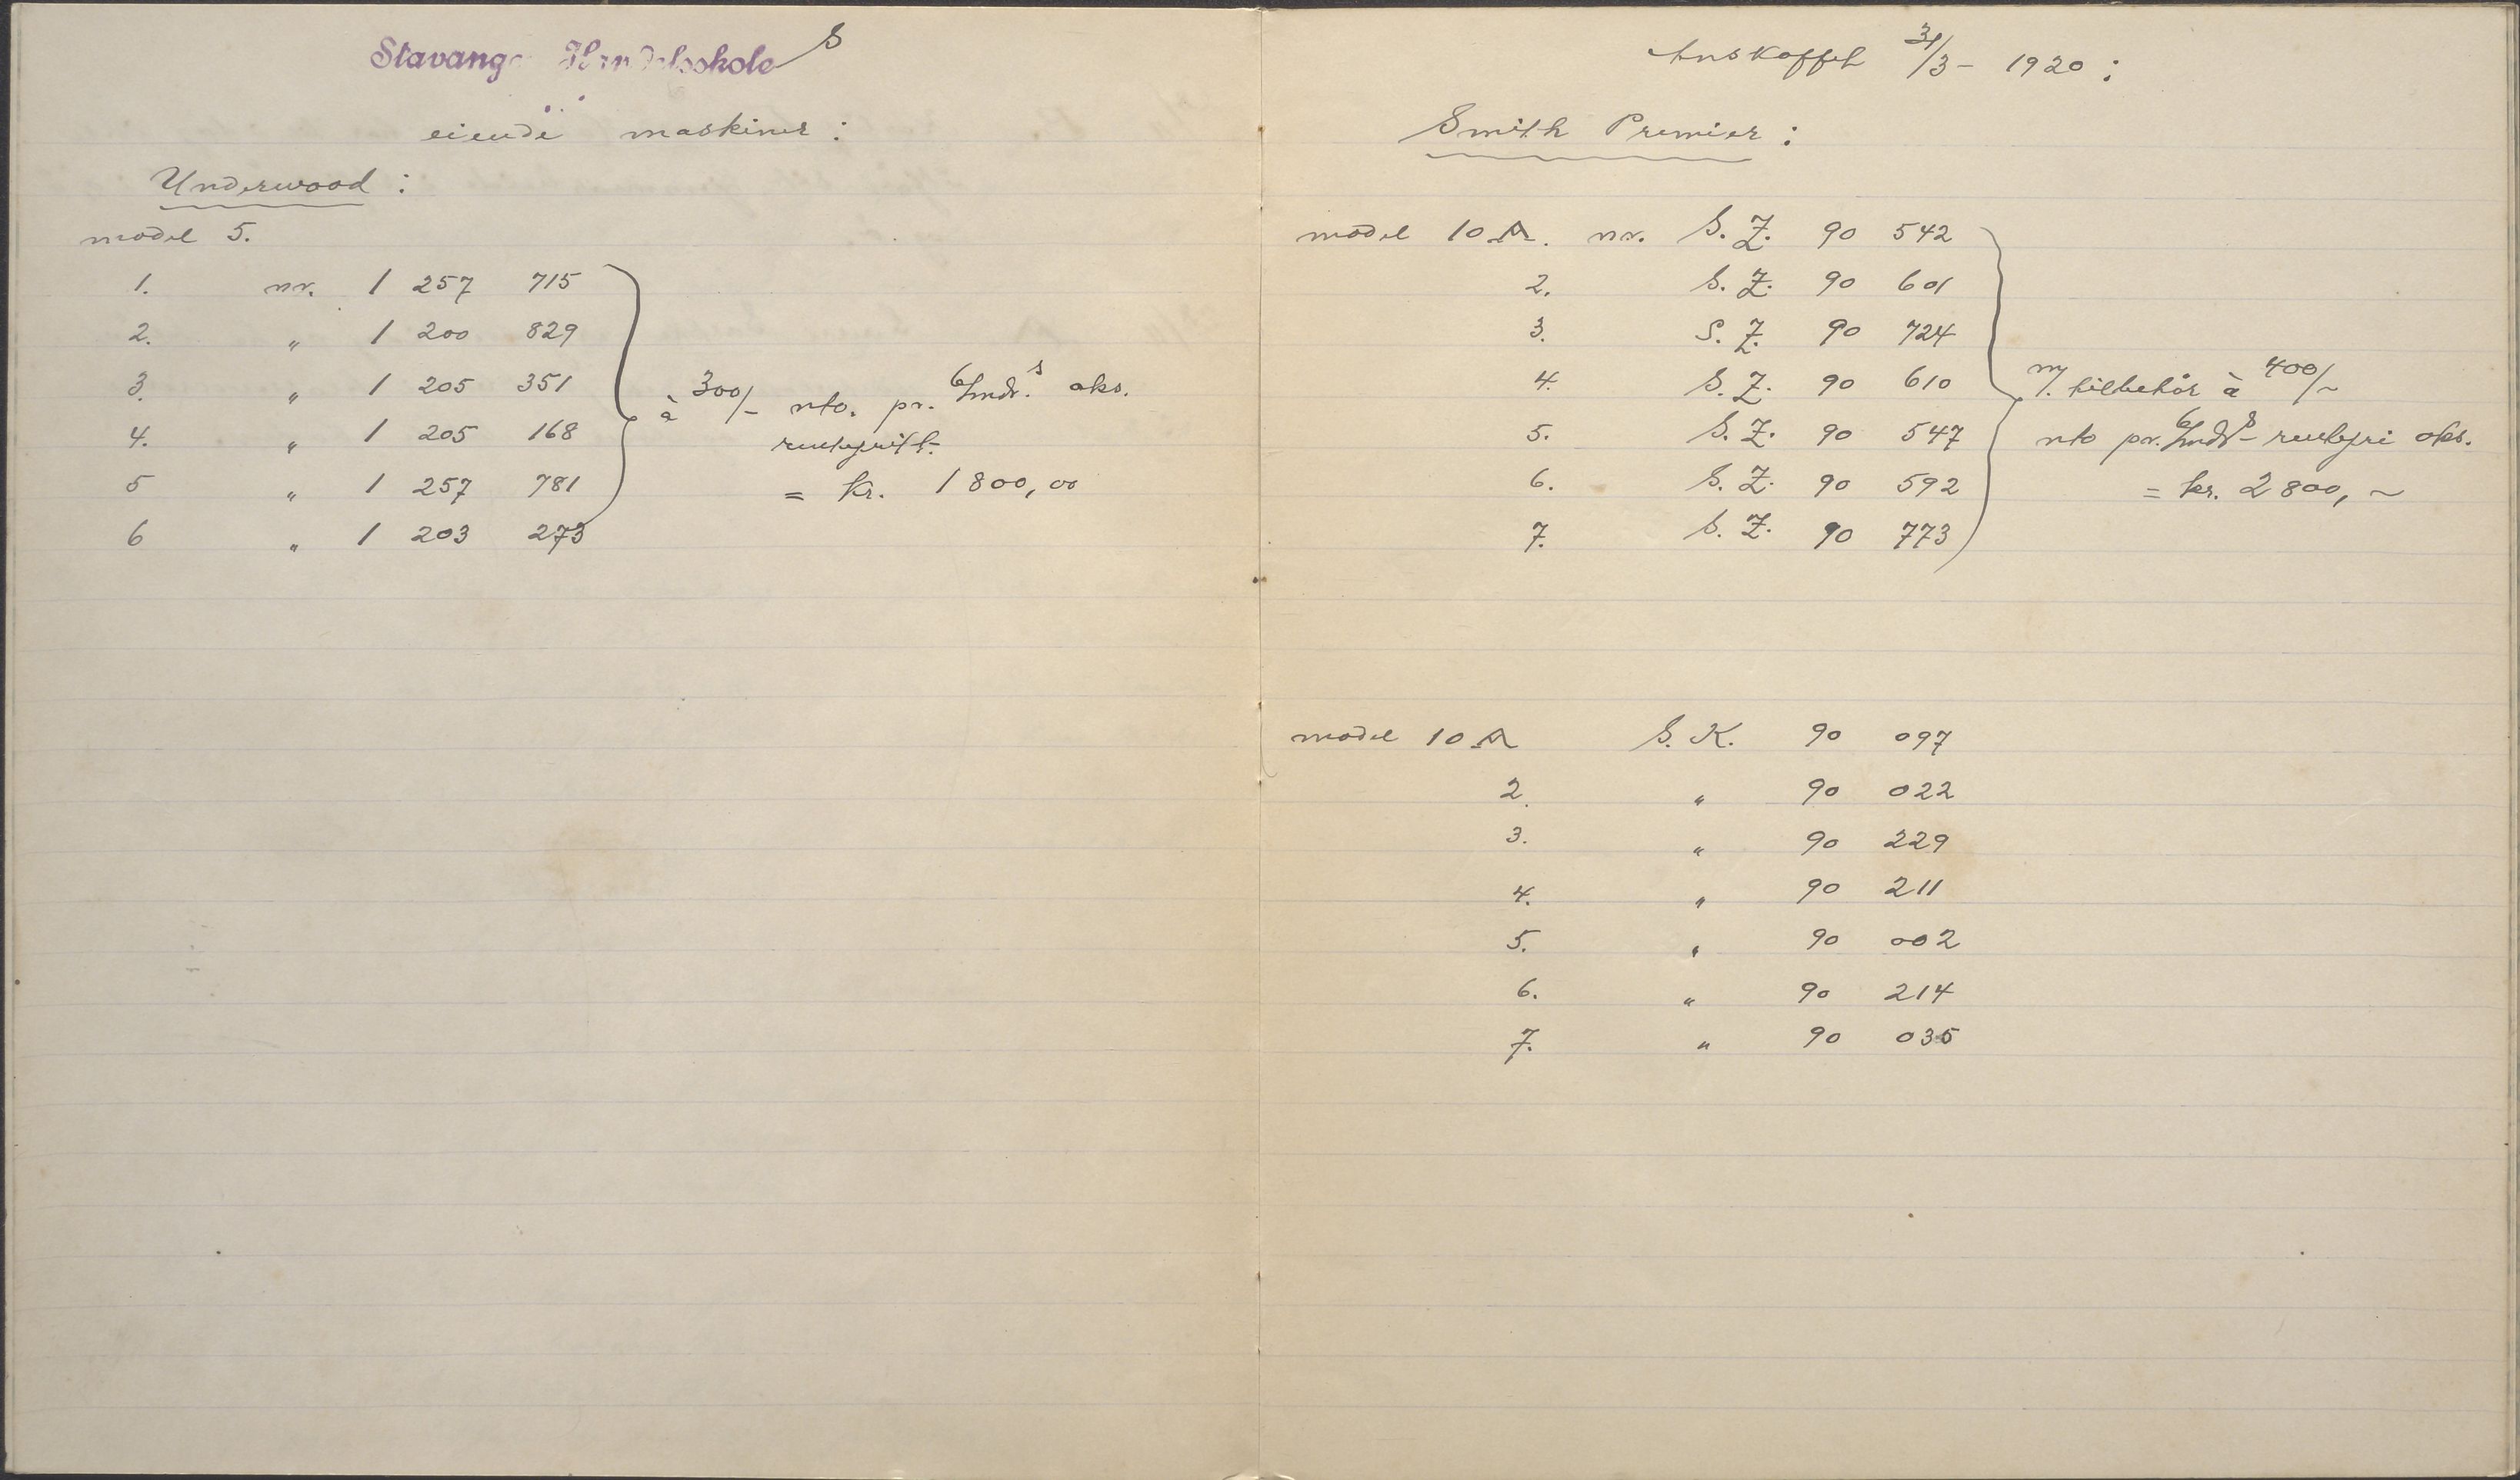 Stavanger Handelsskole s
eiende maskiner :
Underwood :
model 5.
1. nr. 1 257 715
2. " 1 200 829
3. " 1 205 351
4. " 1 205 168
5 " 1 257 781
6 " 1 203 273
à 300/- nto. pr. 6/mdr.s aks.
rentefritt.
= kr. 1 800,00
Anskaffet 31/3 - 1920 :
Smith Premier :
model 10 A. nr. S. Z. 90 542
2. S. Z. 90 601
3. S. Z. 90 724
4. S. Z. 90 610
5. S. Z. 90 547
6. S. Z. 90 592
7. S. Z. 90 773
m/. tilbehör à 400/-
nto pr. 6/mdrs - rentefri aks.
= kr. 2 800, -
model 10 A S. K. 90 097
2. " 90 022
3. " 90 229
4. " 90 211
5. " 90 002
6. " 90 214
7. " 90 035